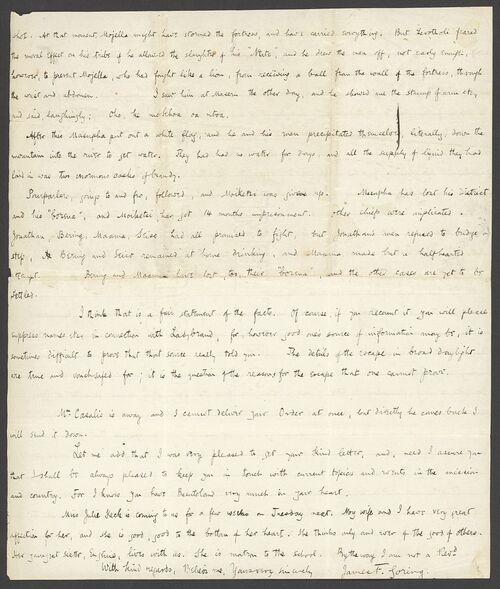 shot. At that moment, Mojella might have stormed the fortress, and have carried everything. But Lerotholi feared
the moral effect on his tribe if he allowed the slaughter of his "Ntate", and he drew the men off, not early enough,
however, to prevent Mojella, who had fought like a lion, from receiving a ball from the wall of the fortress, through
the wrist and abdomen. I saw him at Maseru the other day, and he showed me the stump of arm etc,
and said, laughingly; Oho, ke mokhoa oa ntoa.
After this Masupha put out a white flag, and he and his men precipitated themselves, literally, down the
mountain into the river to get water. They had had no water for days, and all the supply of liquid they had
laid in was two enormous casks of brandy.
Pourparlers, going to and fro, followed, and Moiketsi was given up. Masupha has lost his district
and his "borena", and Moiketsi has got 14 months imprisonment. Other chiefs were implicated.
Jonathan, Bereng, Maama, Seiso had all promised to fight, but Jonathan's men refused to budge a
step, Bereng and Seiso remained at home drinking, and Maama made but a halfhearted
attempt. Bereng and Maama have lost, too, their "borena", and the other cases are yet to be
settled.
I think that is a fair statement of the facts. Of course, if you recount it you will please
suppress names etc, in connection with Ladybrand, for, however good one's source of information may be, it is
sometimes difficult to prove that that source really told you. The details of the escape in broad daylight
are true and vouchsafed for; it is the question of the reasons for the escape that one cannot prove.
Mr Casalis is away and I cannot deliver your Order at once, but directly he comes back I
will send it down.
Let me add that I was very pleased to get your kind letter, and, need I assure you
that I shall be always pleased to keep you in touch with current topics and events in the mission
and country. For I know you have Basutoland very much in your heart.
Miss Julie Keck is coming to us for a few weeks on Tuesday next. My wife and I have very great
affection for her, and she is good, good to the bottom of her heart. She thinks only and ever of the good of others.
Her youngest sister, lives with us. She is matron to the school. By the way I am not a Revd.
With kind regards, Believe me, Yours very sincerely
James F. Goring.